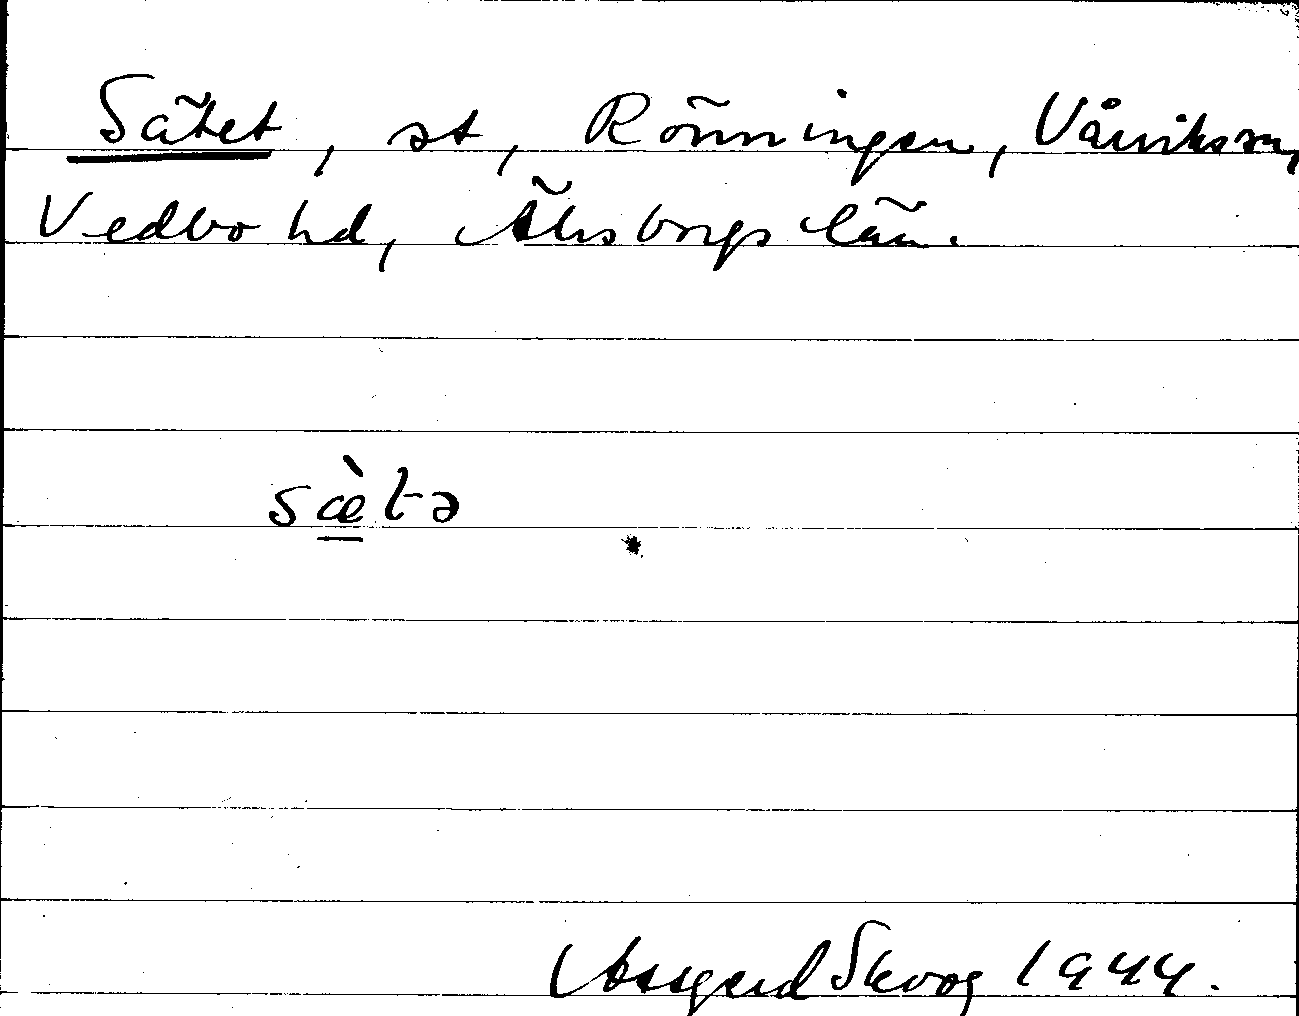 Sätet, st, Rönningen, Vårviks sn,
Vedbo hd, Älvsborgs län.
sæ̀tə
Assgerd Skvog 1944.